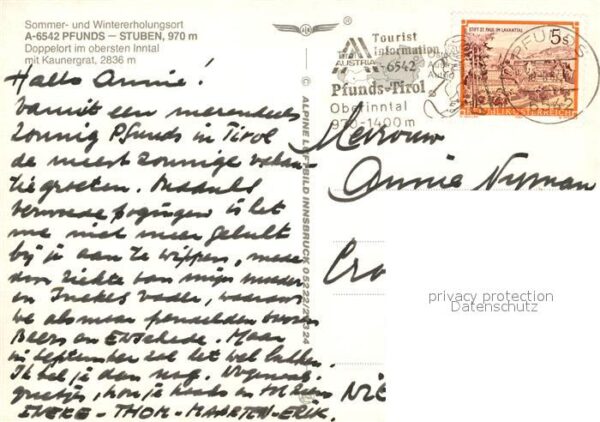 Sommer- und Wintererholungsort
A-6542 PFUNDS — STUBEN, 970 m
Doppelort im obersten Inntal
mit Kaunergrat, 2836 m
Hallo Annie!
Vanuit een
zonnig Pfunds in Tirol
de meest zonnige vakan-
tiegroeten. Ondanks
verwoede pogingen is het
me niet meer gelukt
bij je aan te wippen, mede
door ziekte van mijn moeder
en Inekes vader, waarvoor
we alsmaar pendelden tussen
Beers en Enschede. Maar
in september zal het wel lukken.
Ik bel je dan nog.
groetjes, hou je haaks en tot ziens
INEKE - THOM - MAARTEN - ERIK.
© ALPINE LUFTBILD INNSBRUCK 05222/
Tourist
Information
AUSTRIA 6542
Pfunds-Tirol
Oberinntal
970-1400m
STIFT ST. PAUL IM LAVANTTAL
5 S
REPUBLIK ÖSTERREICH
PFUNDS
6542
Mevrouw
Annie Nyman
Cro
NIE
privacy protection
Datenschutz